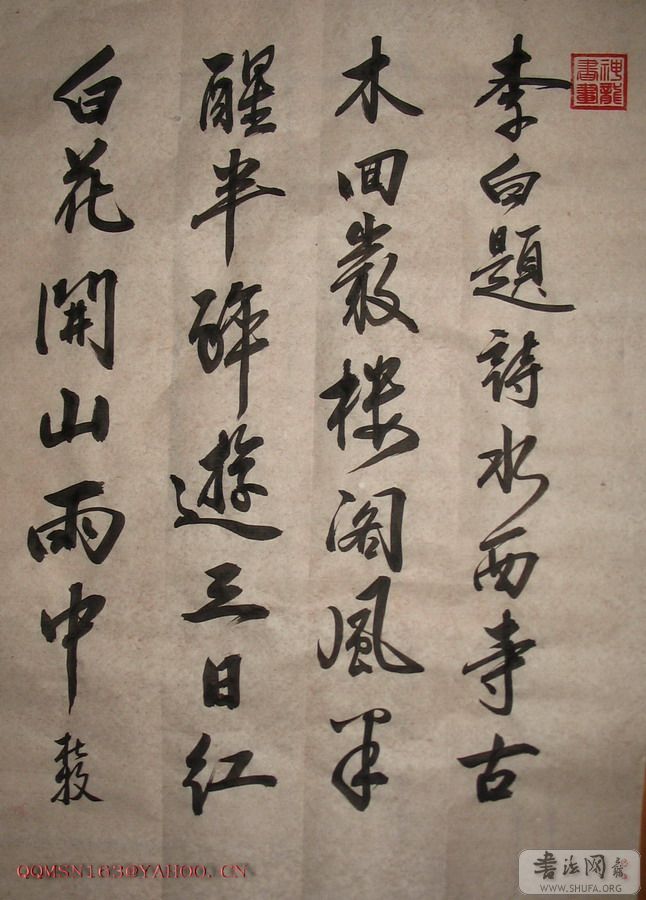 神龍書畫
李白題詩水西寺古
木回巖楼阁風半
醒半酔遊三日红
白花開山雨中
QQMSN163@YAHOO.CN
书法网
WWW.SHUFA.ORG